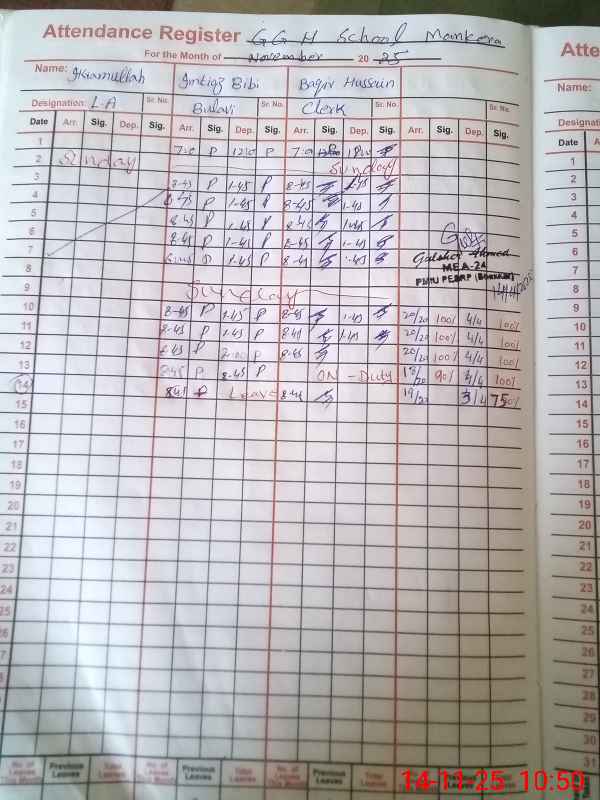 Attendance Register G G H School Mankera
For the Month of November 20 25
Name: Ikramullah Imtiaz Bibi Baqir Hussain
Designation: L-A Sr. No. Bulavi Sr. No. Clerk Sr. No. Sr. No.
Date Arr. Sig. Dep. Sig. Arr. Sig. Dep. Sig. Arr. Sig. Dep. Sig. Arr. Sig. Dep. Sig.
1 P P
2 Sunday Sunday
3 8-45 P 1-45 P 8-45 1-45
4 P 1-45 P 8-45 1-45
5 8-45 P 1-45 P 8-45 1-45
6 8-45 P 1-45 P 8-45 1-45
7 P 1-45 P 8-45 1-45
Gulsher Ahmed
MEA-24
8
9 Sunday
10 8-45 P 1-45 P 8-45 1-45 20/20 100% 4/4 100%
11 8-45 P 1-45 P 8-45 1-45 20/20 100% 4/4 100%
12 8-45 P P 8-45 20/20 100% 4/4 100%
13 8-45 P P ON - Duty 90% 4/4 100%
14 8-45 P Leave 8-45 19/20 3/4 75%
15
16
17
18
19
20
21
22
23
24
25
26
27
28
29
30
31
No. of Leaves This Month Previous Leaves Total Leaves No. of Leaves This Month Previous Leaves Total Leaves No. of Leaves This Month Previous Leaves Total Leaves
14-11-25 10:50
Atte
Name:
Designati
Date A
1
2
3
4
5
6
7
8
9
10
11
12
13
14
15
16
17
18
19
20
21
22
23
24
25
26
27
28
29
30
31